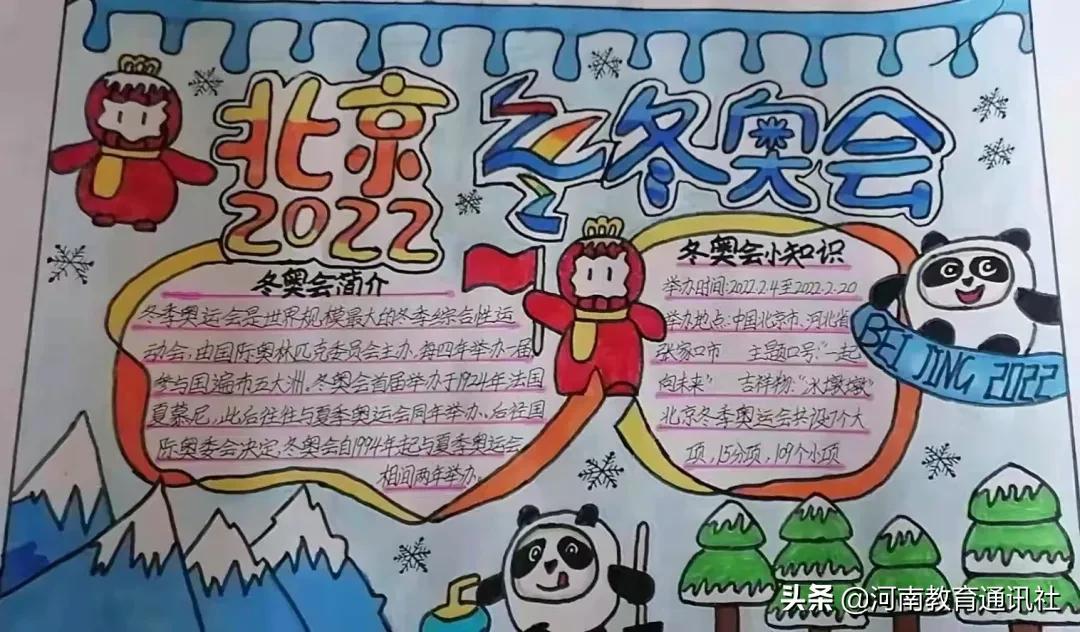 北京
2022
冬奥会
冬奥会简介
冬季奥运会是世界规模最大的冬季综合性运
动会，由国际奥林匹克委员会主办，每四年举办一届，
参与国遍布五大洲，冬奥会首届举办于1924年法国
夏慕尼，此后往往与夏季奥运会同年举办、后经国
际奥委会决定，冬奥会自1994年起与夏季奥运会
相间两年举办。
冬奥会小知识
举办时间：2022.2.4至2022.2.20
举办地点：中国北京市、河北省
张家口市 主题口号："一起
向未来" 吉祥物："冰墩墩"
北京冬季奥运会共设7个大
项，15分项，109个小项
BEIJING 2022
头条 @河南教育通讯社